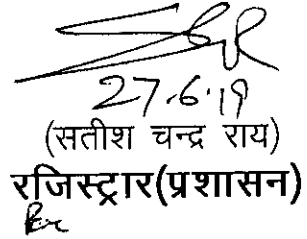 27.6.19
(सतीश चन्द्र राय)
रजिस्ट्रार(प्रशासन)